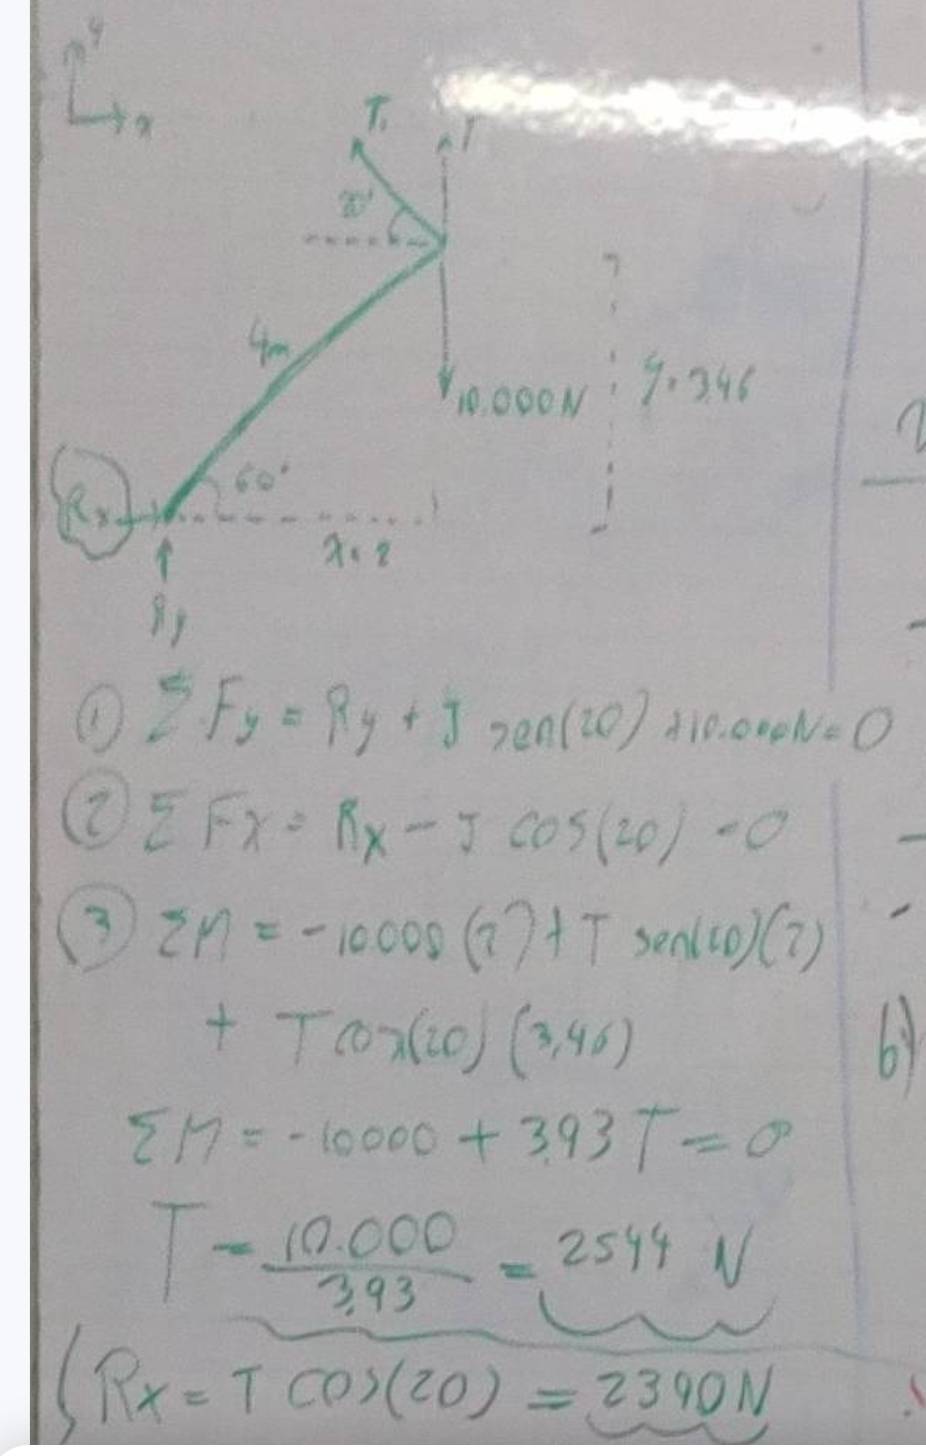 y
x
T
T
20°
4m
10.000N
y = 3.46
60°
Rx
x = 2
Ry
① ΣFy = Ry + T sen(20) +10.000N = 0
② ΣFx = Rx - T cos(20) = 0
③ ΣM = -10000 (2) + T sen(20)(2)
+ T cos(20) (3,46)
ΣM = -10000 + 3.93 T = 0
T = 10.000 / 3.93 = 2544 N
Rx = T cos(20) = 2390N
b)